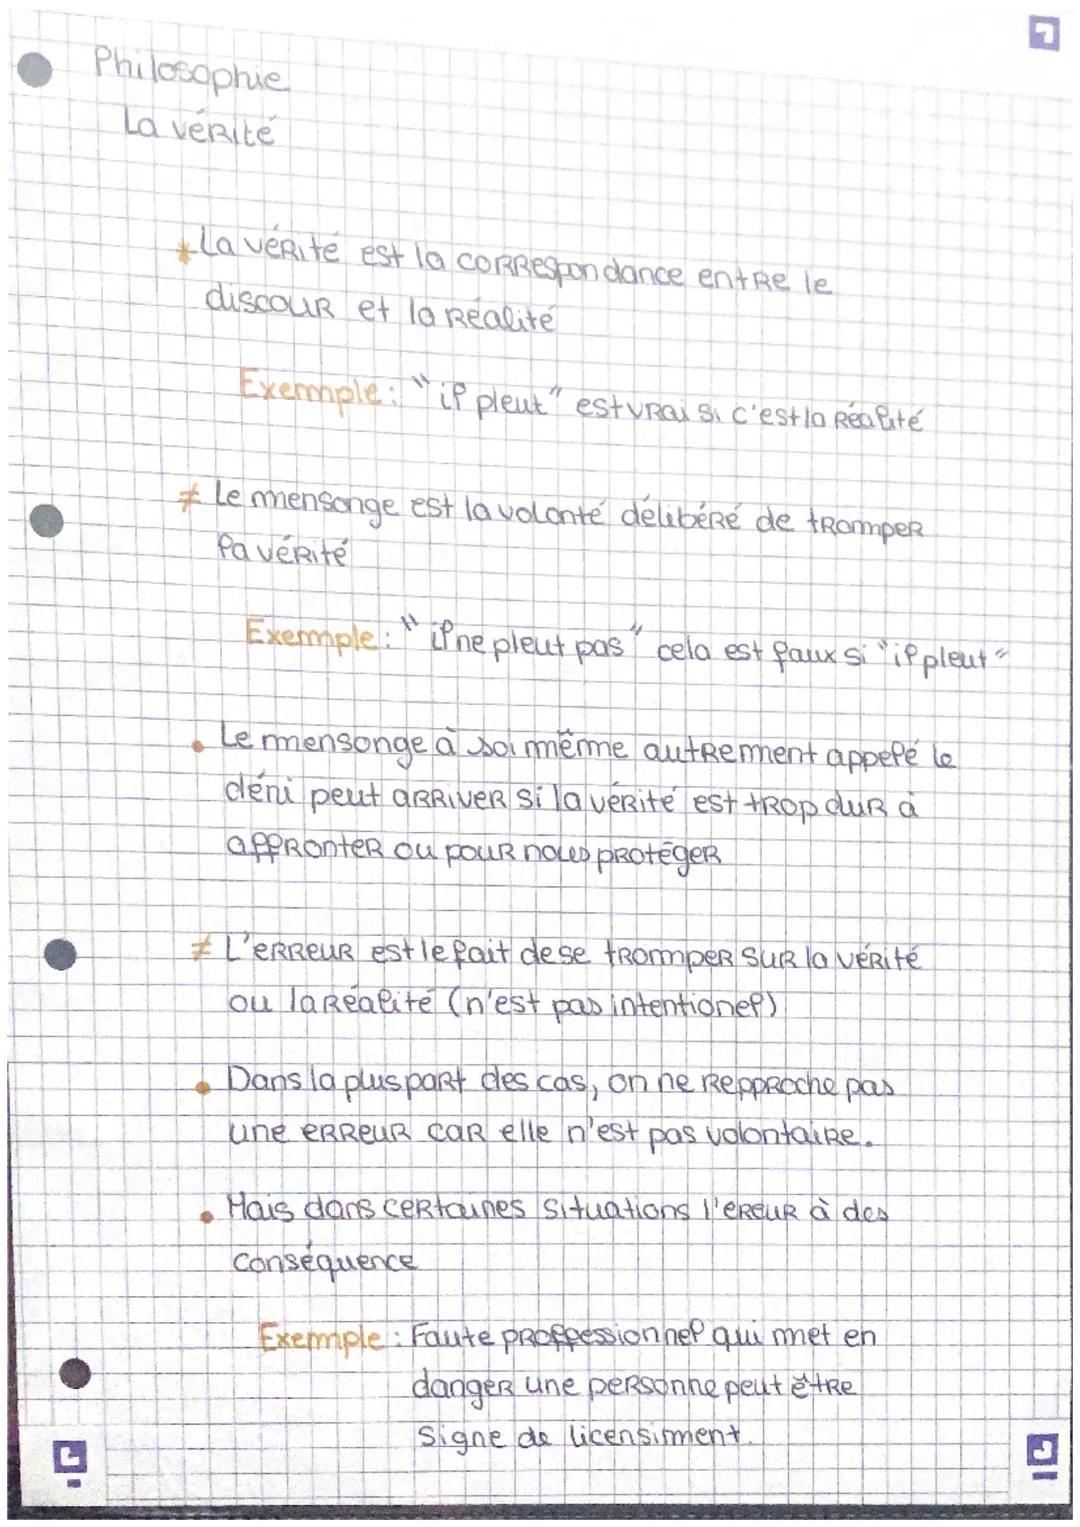 Philosophie
La vérité
* La vérité est la correspondance entre le
discour et la réalité
Exemple : "il pleut" est vrai si c'est la réalité
≠ Le mensonge est la volonté délibéré de tromper
la vérité
Exemple : "il ne pleut pas" cela est faux si "il pleut"
• Le mensonge à soi même autrement appelé le
déni peut arriver si la vérité est trop dur à
affronter ou pour nous protéger
≠ L'erreur est le fait de se tromper sur la vérité
ou la réalité (n'est pas intentionel)
• Dans la plus part des cas, on ne repproche pas
une erreur car elle n'est pas volontaire.
• Mais dans certaines situations l'ereur à des
conséquence
Exemple : Faute proffessionnel qui met en
danger une personne peut être
signe de licensiment.